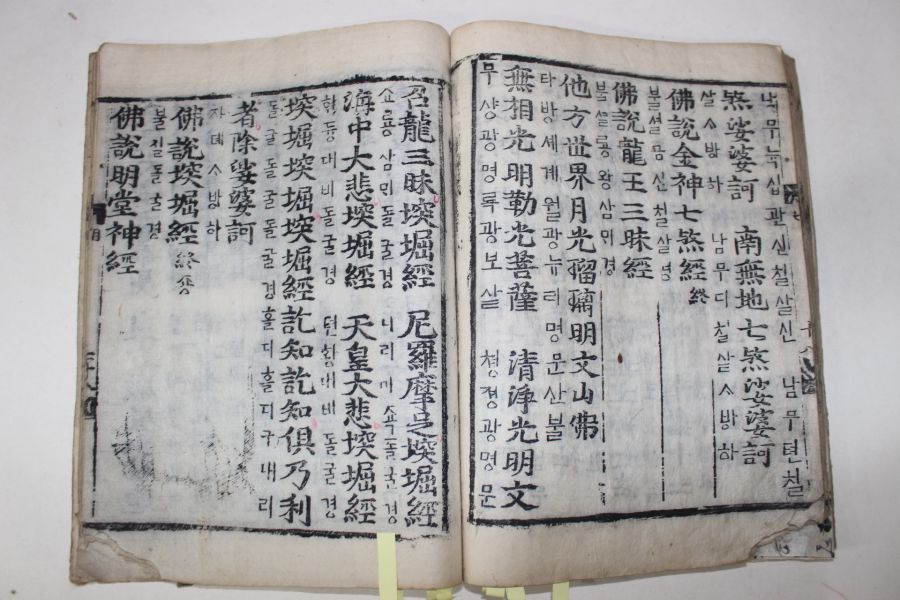 남무뉵십관신칠살신 남무텬칠
煞娑婆訶 南無地七煞娑婆訶
살ᄉ방하 남무디칠살ᄉ방하
佛說金神七煞經 終
불셜금신칠살경
佛說龍王三昧經
불셜룡왕삼미경
他方世界月光瑠璃明文山佛
타방세계월광뉴리명문산불
無相光明勒光菩薩 清淨光明文
무샹광명륵광보살 쳥졍광명문
召龍三昧堗堀經 尼羅摩堗堀經
쇼룡삼미돌굴경 니리마돌굴경
海中大悲堗堀經 天皇大悲堗堀經
듕대비돌굴경 텬황대비돌굴경
堗堀堗堀堗堀經 訖知訖知俱乃利
돌굴돌굴돌굴경 흘디흘디구내리
者除娑婆訶
쟈뎨ᄉ방하
佛說堗堀經 終
불질돌굴경
佛說明堂神經